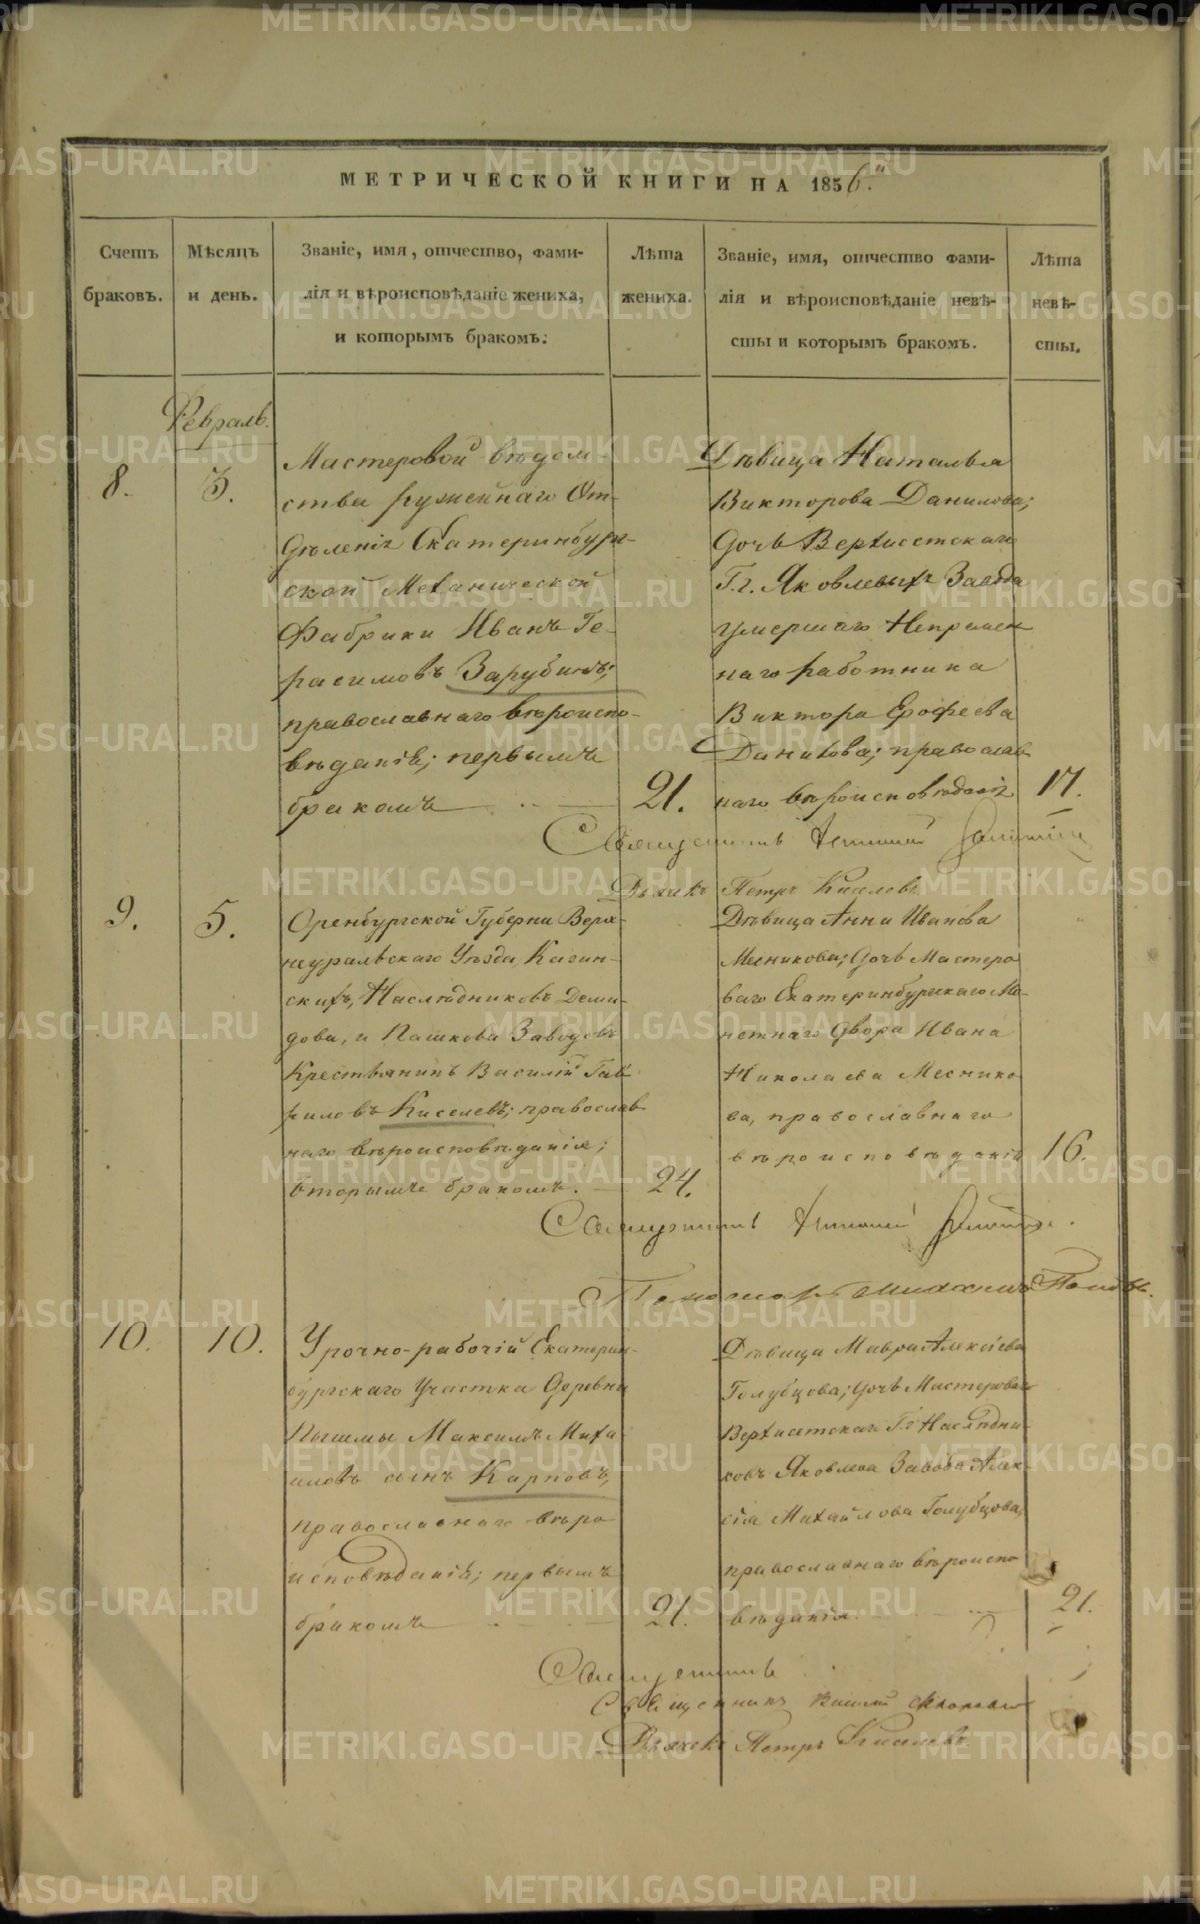 МЕТРИЧЕСКОЙ КНИГИ НА 1856.й
Счетъ браковъ.
Мѣсяцъ и день.
Званіе, имя, отчество, фами-
лія и вѣроисповѣданіе жениха,
и которымъ бракомъ.
Лѣта жениха.
Званіе, имя, отчество фами-
лія и вѣроисповѣданіе невѣ-
сты и которымъ бракомъ.
Лѣта невѣ-
сты.
Февраль.
8.
3.
Мастеровой вѣдом-
ства Оружейнаго От-
дѣленія Екатеринбург-
ской Механической
Фабрики Иванъ Ге-
расимовъ Зарубинъ;
православнаго вѣроиспо-
вѣданія; первымъ
бракомъ
21.
Дѣвица Наталья
Викторова Данилова;
дочь Верхисетскаго
Г.г. Яковлевыхъ Завода
умершаго Непремен
наго работника
Виктора Ерофеева
Данилова; православ
наго вѣроисповѣданія
17.
Дьячекъ Петръ Киселевъ
9.
5.
Оренбургской Губерни Верх-
неуральскаго Уѣзда Кагин-
скихъ, Наслѣдниковъ Деми-
дова, и Пашкова Заводовъ
Крестьянинъ Василій Гав
риловъ Киселевъ; православ
наго вѣроисповѣданія;
вторымъ бракомъ.
24.
Дѣвица Анна Иванова
Месникова; дочь Мастеро
ваго Екатеринбургскаго Мо-
нетнаго Двора Ивана
Николаева Меснико
ва, православнаго
вѣроисповѣданія
16.
Пономарь Поповъ.
10.
10.
Урочно-рабочій Екатерин-
бургскаго Участка Деревни
Пышмы Максимъ Миха
иловъ сынъ Карповъ,
православнаго вѣро
исповѣданія; первымъ
бракомъ
21.
Дѣвица Мавра Алексіева
Голубцова; дочь Мастероваго
Верхисетскаго Гг Наслѣдни-
ковъ Яковлева Завода Алек-
сія Михайлова Голубцова,
православнаго вѣроиспо
вѣданія.
21.
Священникъ
Дьячекъ Петръ Киселевъ.
METRIKI.GASO-URAL.RU